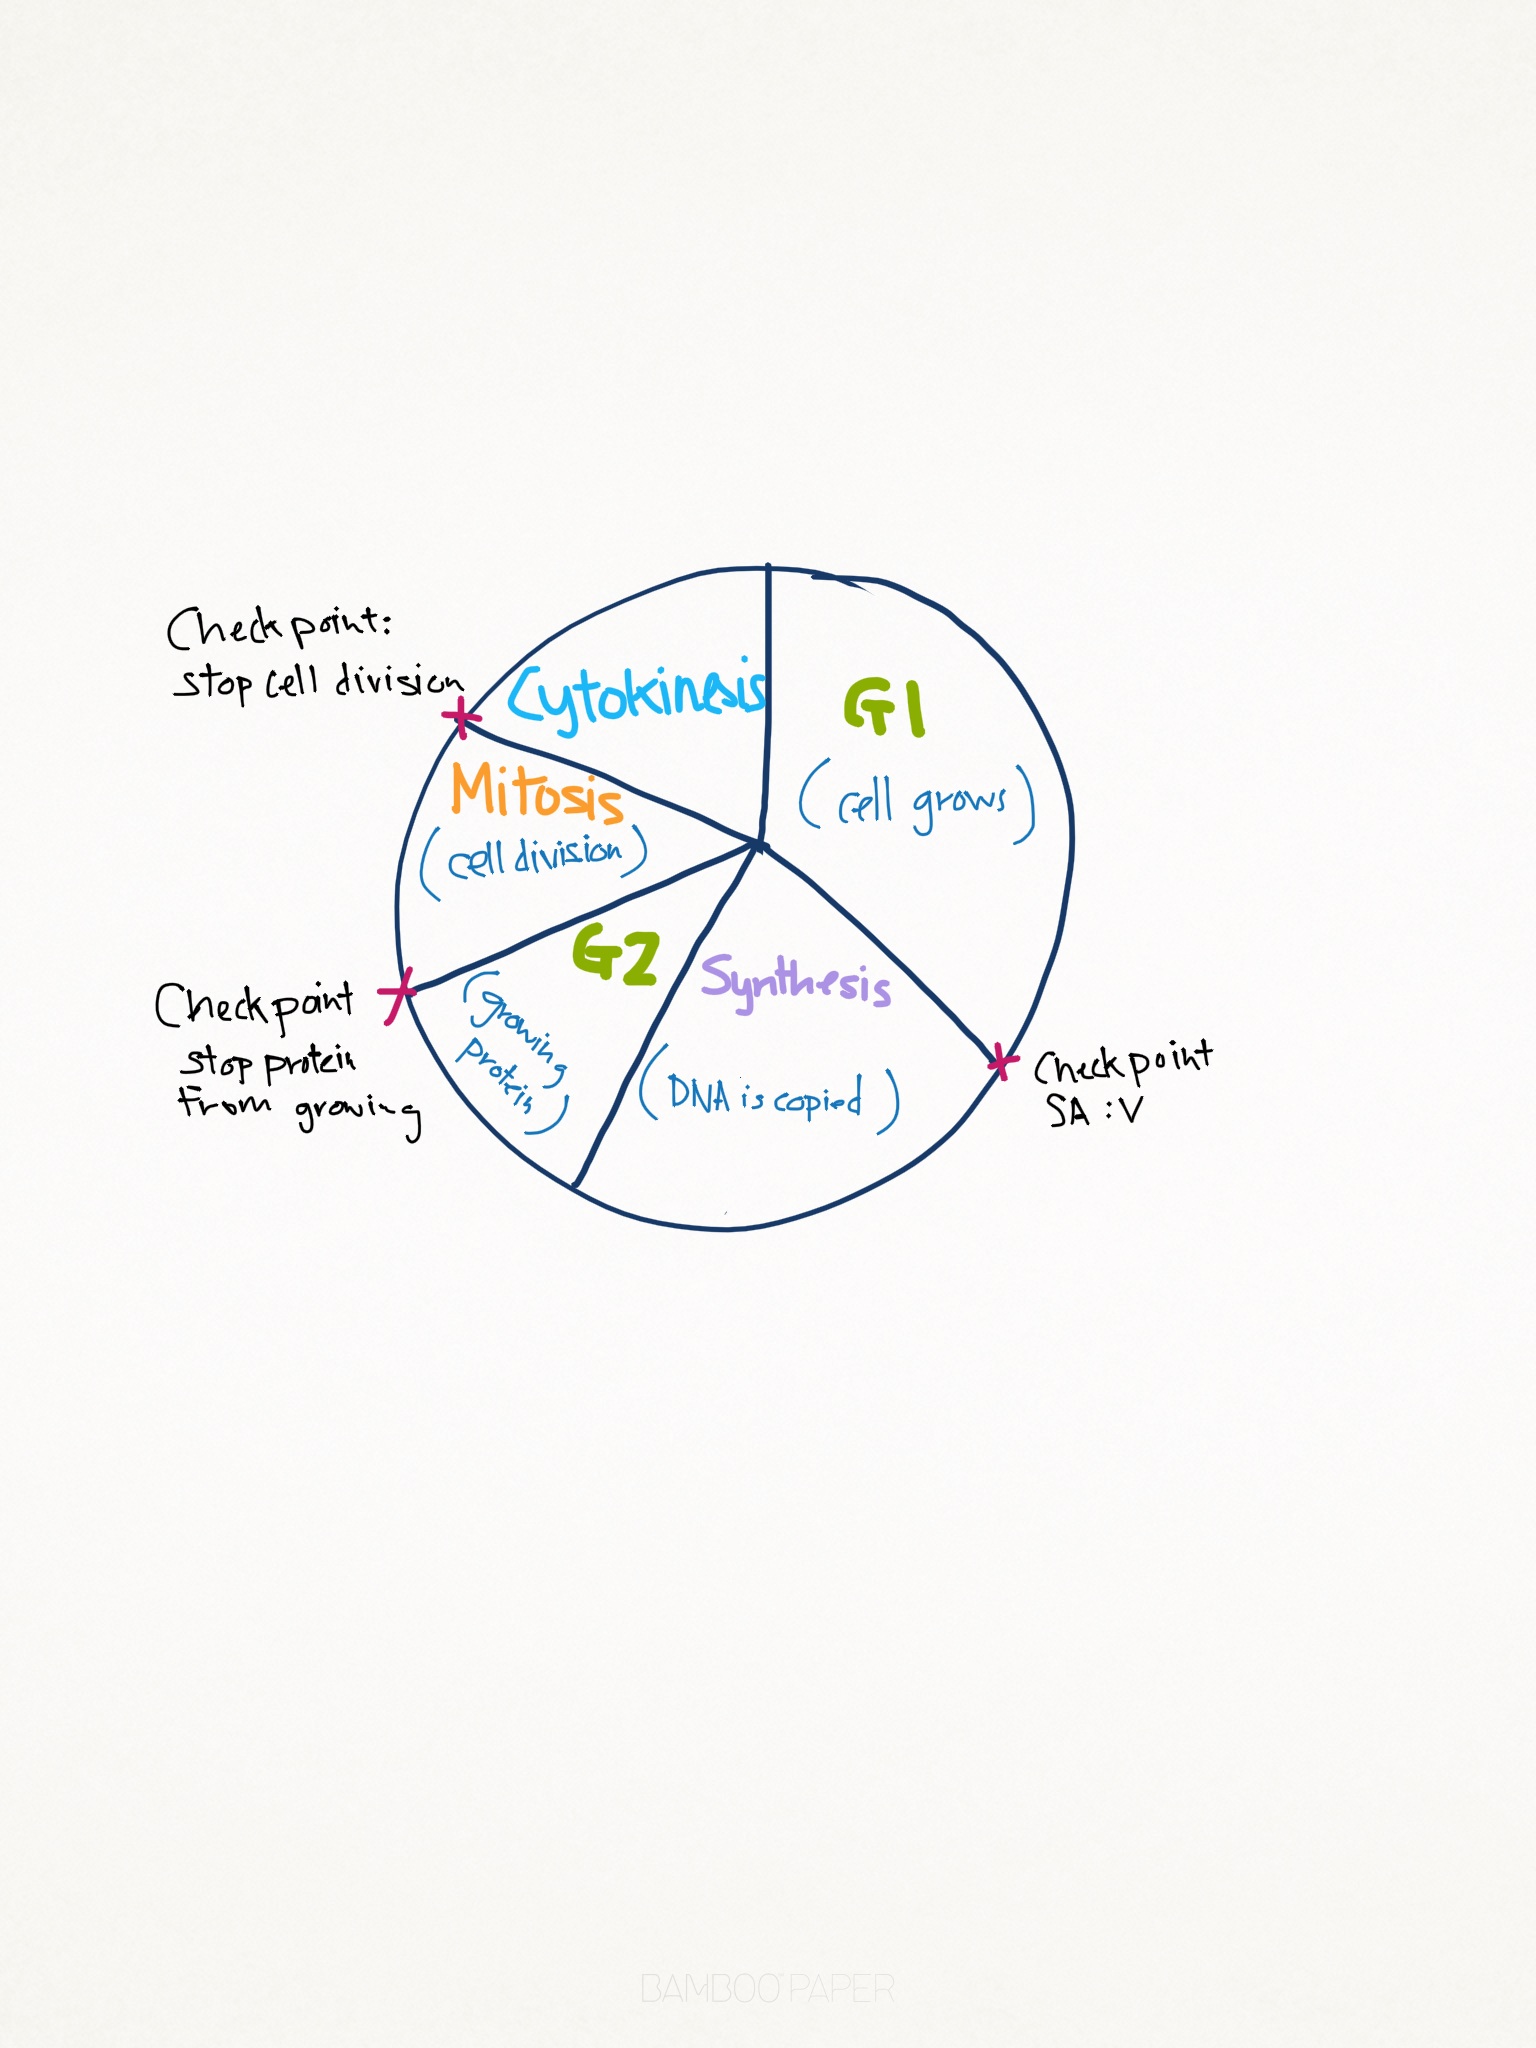 Checkpoint:
stop cell division
Cytokinesis
G1
(cell grows)
Mitosis
(cell division)
G2
(growing
protein)
Synthesis
(DNA is copied)
Checkpoint
stop protein
from growing
Checkpoint
SA:V
BAMBOO PAPER